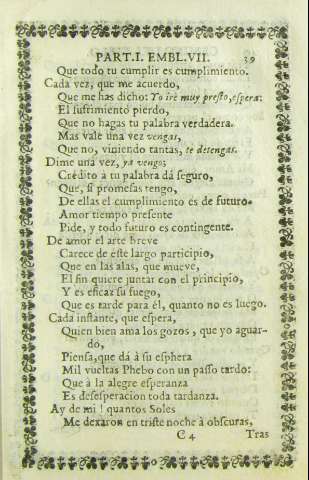 PART. I. EMBL. VII. 39
Que todo tu cumplir es cumplimiento.
Cada vez, que me acuerdo,
Que me has dicho: Yo irè muy presto, espera:
El sufrimiento pierdo,
Que no hagas tu palabra verdadera.
Mas vale una vez vengas,
Que no, viniendo tantas, te detengas.
Dime una vez, ya vengo;
Crédito à tu palabra dá seguro,
Que, si promesas tengo,
De ellas el cumplimiento es de futuro.
Amor tiempo presente
Pide, y todo futuro es contingente.
De amor el arte breve
Carece de este largo participio,
Que en las alas, que mueve,
El fin quiere juntar con el principio,
Y es eficaz su fuego,
Que es tarde para èl, quanto no es luego.
Cada instante, que espera,
Quien bien ama los gozos, que yo aguar-
do,
Piensa, que dá à su esphera
Mil vueltas Phebo con un passo tardo:
Que à la alegre esperanza
Es desesperacion toda tardanza.
Ay de mi! quantos Soles
Me dexaron en triste noche à obscuras,
C 4 Tras